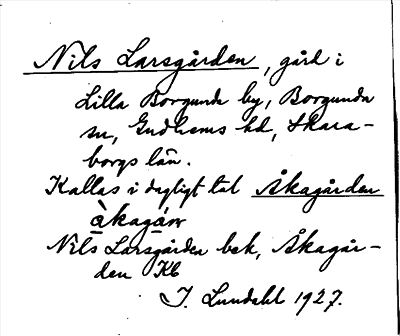 Nils Larsgården, gård i
Lilla Borgunda by, Borgunda
sn, Gudhems hd, Skara-
borgs län.
Kallas i dagligt tal Åkagården
àkagáɷ
Nils Larsgården bek, Åkagår-
den Kb
J. Lundahl 1927.